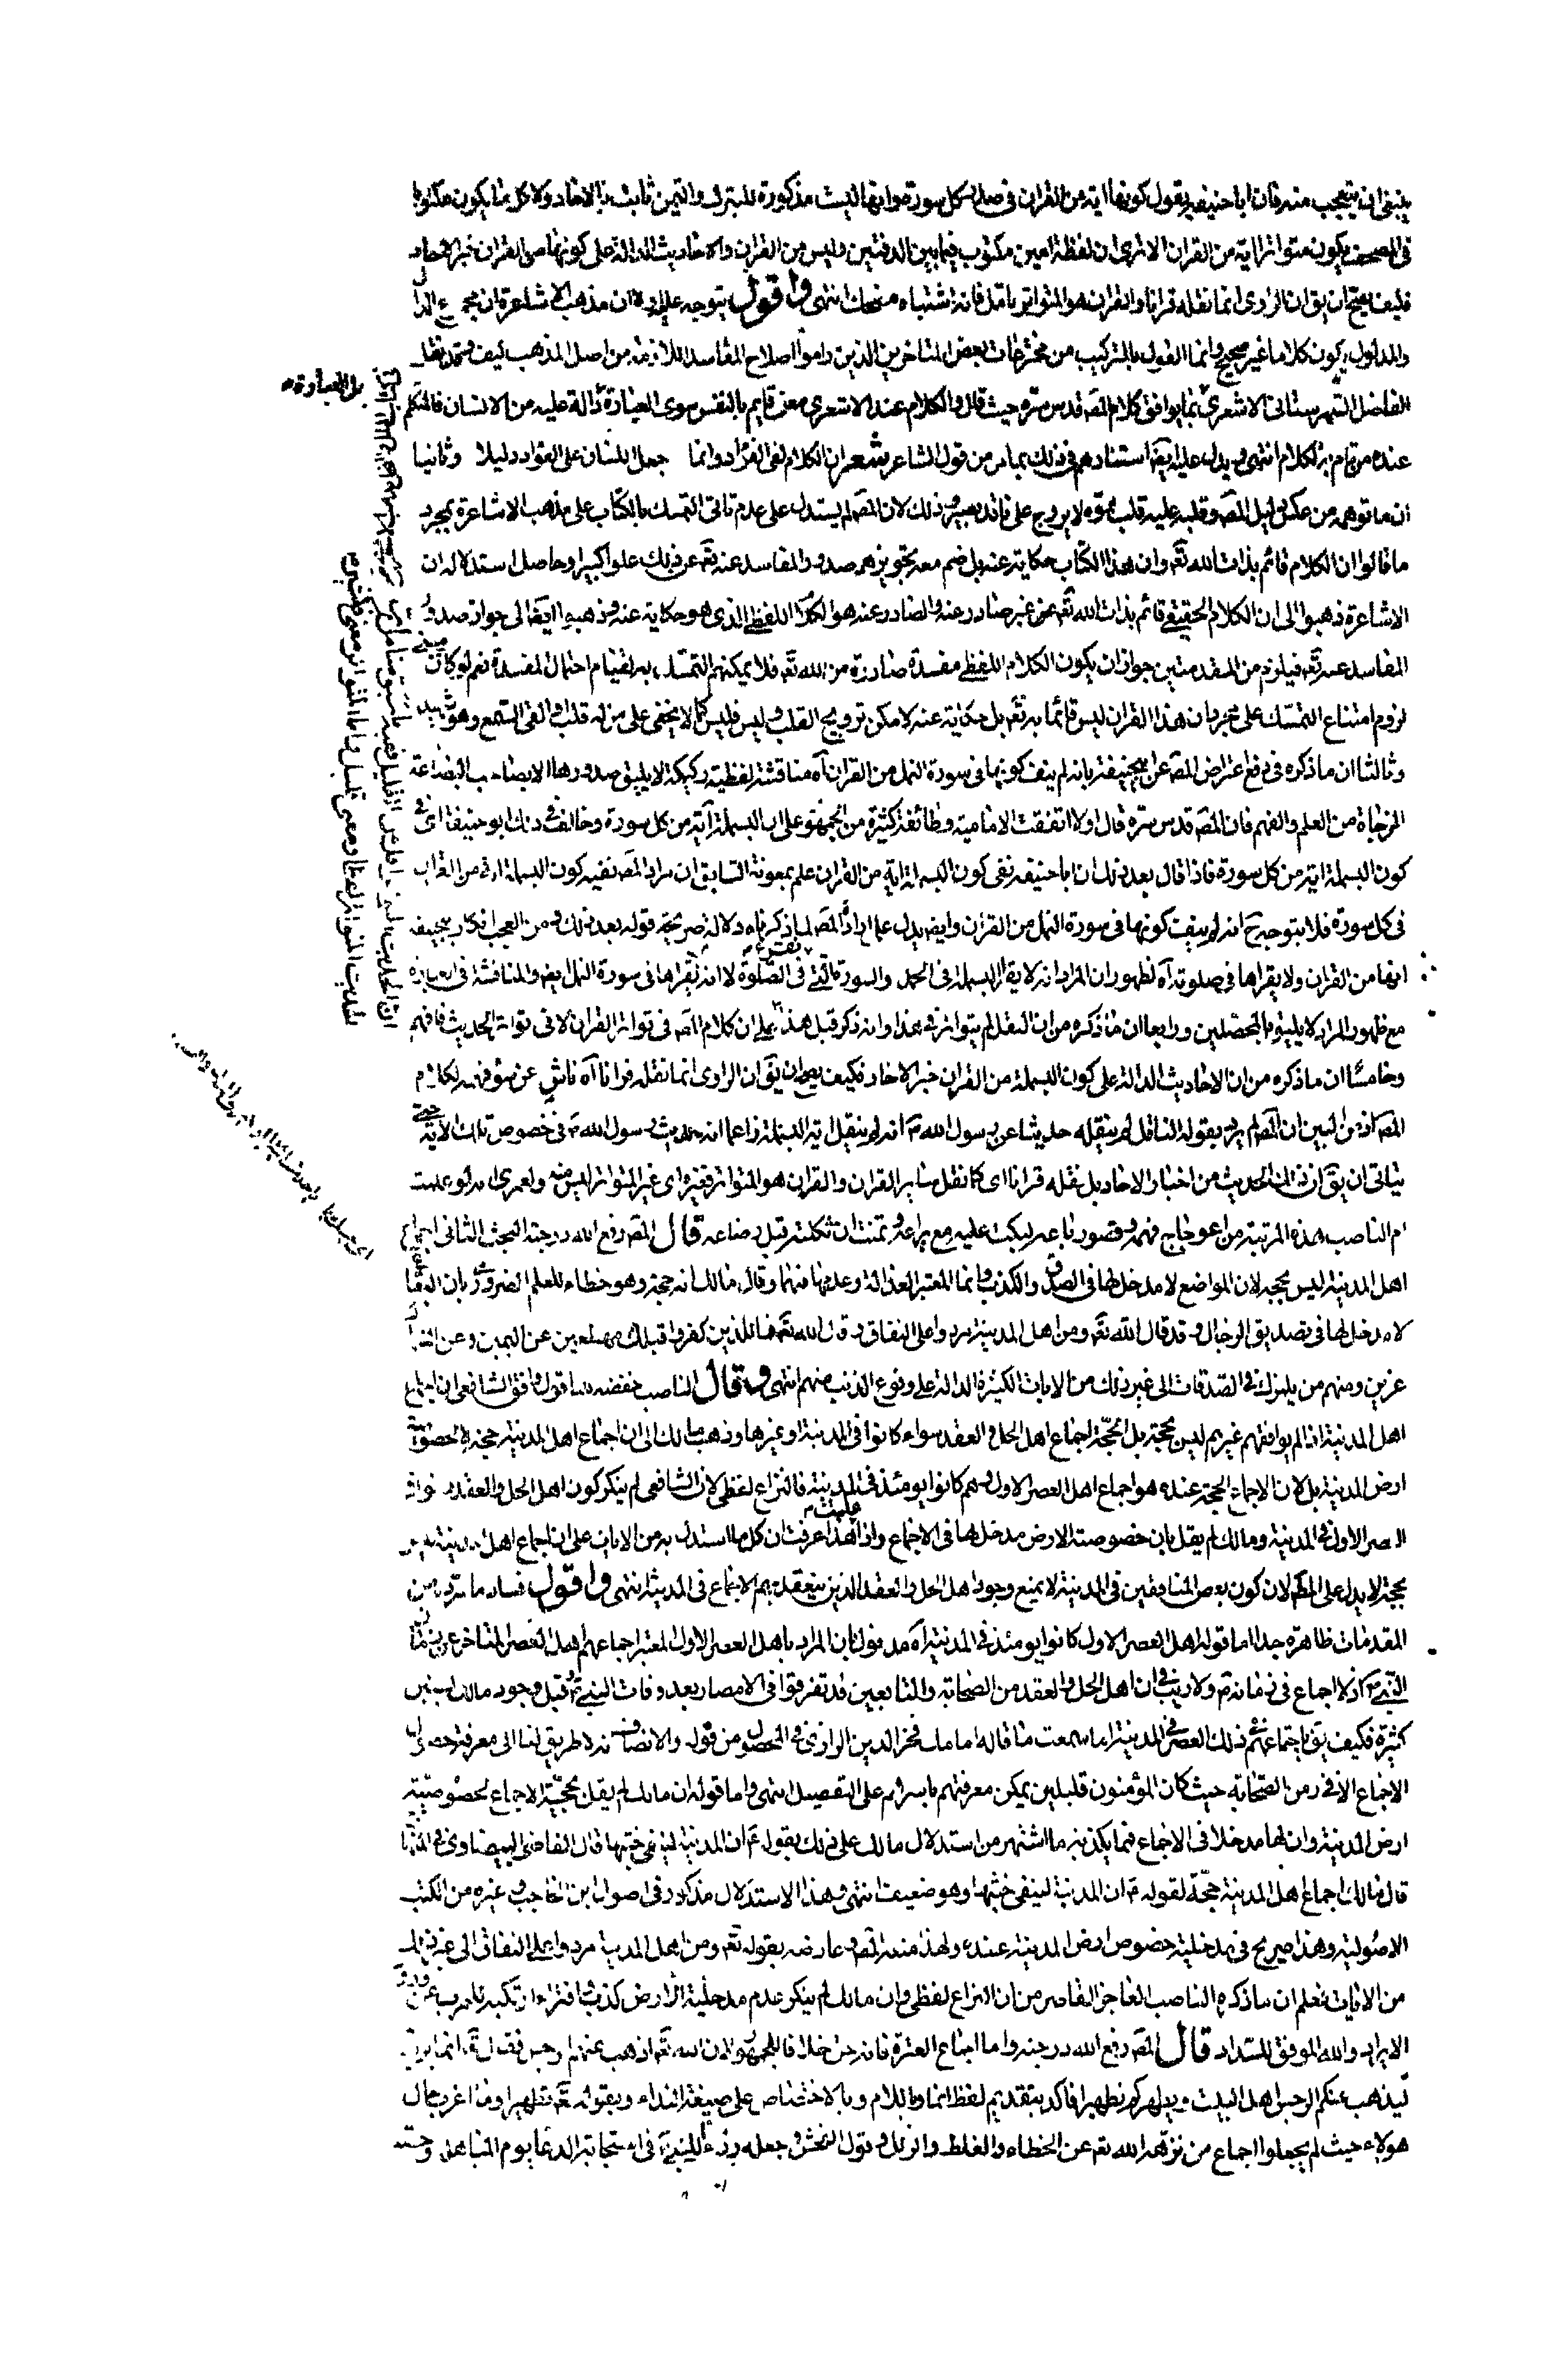 ينبغى ان يتعجب منه فان ابا حنيفة يقول كونها آية من القران فى صدر كل سورة وانها ليست مذكورة للتبرك والتيمن ثابت بالاحاد ولا كل ما يكون مكتوبا
فى المصحف يكون متواترا آية من القران الا ترى ان لفظة امين مكتوب فيما بين الدفتين وليس من القران والاحاديث الدالة على كونها من القران خبر الاحاد
فكيف يصح ان يق ان الراوى انما نقله قرانا والقران هو المتواتر تامل فانه اشتباه منك انتهى واقول يتوجه عليه اولا ان مذهب الاشاعرة ان مجموع الدال
والمدلول يكون كلاما غير صحيح وانما القول بالتركيب من مخترعات بعض المتاخرين الذين راموا اصلاح المفاسد اللازمة من اصل المذهب كيف وقد نقل
الفاضل الشهرستانى الاشعرى ما يوافق كلام المص قدس سره حيث قال والكلام عند الاشعرى معنى قايم بالنفس سوى العبارة دالة عليه من الانسان فالمتكلم
عنده من قام به الكلام انتهى ويدل عليه ايض استنادهم فى ذلك بما مر من قول الشاعر شعر ان الكلام لفى الفؤاد وانما جعل اللسان على الفؤاد دليلا وثانيا
ان ما توهمه من عكس دليل المص وقلبه عليه قلب مموه لا يروج على ناقد بصير وذلك لان المص لم يستدل على عدم تاتى التمسك بالكتاب على مذهب الاشاعرة بمجرد
ما قالوا ان الكلام قائم بذات الله تع وان هذا الكتاب حكاية عنه بل ضم معه تجويزهم صدور المفاسد عنه تع عن ذلك علوا كبيرا وحاصل استدلاله ان
الاشاعرة ذهبوا الى ان الكلام الحقيقى قائم بذات الله تع غير صادر عنه والصادر عنه هو الكلام اللفظى الذى هو حكاية عنه وذهبوا ايض الى جواز صدور
المفاسد عنه تع فيلزم من المقدمتين جواز ان يكون الكلام اللفظى مفسدة صادرة من الله تع فلا يمكنهم التمسك به لقيام احتمال المفسدة نعم لو كان مبنى
لزوم امتناع التمسك على مجرد ان هذا القران ليس قائما به تع بل حكاية عنه لامكن ترويج القلب وليس فليس كما لا يخفى على من له قلب او القى السمع وهو شهيد
وثالثا ان ما ذكره فى دفع اعتراض المص عن ابى حنيفة بانه لم ينف كونها فى سورة النمل من القران آه مناقشة لفظية ركيكة لا يليق صدورها الا بصاحب البضاعة
المزجاة من العلم والفهم فان المص قدس سره قال اولا اتفقت الامامية وطائفة كثيرة من الجمهور على ان البسملة آية من كل سورة وخالف فى ذلك ابو حنيفة اى فى
كون البسملة آية من كل سورة فاذا قال بعد ذلك ان ابا حنيفة نفى كون البسملة آية من القران علم بمعونة السابق ان مراد المص نفيه كون البسملة آية من القران
فى كل سورة فلا يتوجه ح انه لم ينف كونها فى سورة النمل من القران وايض يدل على ارادة المص لما ذكرناه دلالة صريحة قوله بعد ذلك ومن العجب انكار ابى حنيفة
انها من القران ولا يقراها فى صلوته آه لظهور ان المراد انه لا يقرا البسملة فى الحمد والسورة التى تقرء فى الصلوة لا انه لا يقراها فى سورة النمل ايض والمناقشة فى العبارة
مع ظهور المراد لا يليق بالمحصلين ورابعا ان ما ذكره من ان النقل لم يتواتر فى هذا وانه ذكر قبل هذا يعلم ان كلام المص فى تواتر القران لا فى تواتر الحديث فافهم
وخامسا ان ما ذكره من ان الاحاديث الدالة على كون البسملة من القران خبر الاحاد فكيف يصح ان يق ان الراوى انما نقله قرانا آه ناش عن سوء فهمه لكلام
المص اذ من البين ان المص لم يرد بقوله الناقل لم ينقله حديثا عن رسول الله ص انه لم ينقل آية البسملة زاعما انه حديث رسول الله ص فى خصوص تلك الآية حتى
يتاتى ان يق ان ذلك الحديث من اخبار الاحاد بل نقله قرانا اى كما نقل ساير القران والقران هو المتواتر فغيره اى غير المتواتر ليس منه ولعمرى انه لو علمت
ام الناصب هذه المرتبة من اعوجاج فهمه وقصور باعه لبكت عليه مع يراعه وتمنت ان ثكلته قبل رضاعه قال المص رفع الله درجته البحث الثانى اجماع
اهل المدينة ليس بحجة لان المواضع لا مدخل لها فى الصدق والكذب وانما المعتبر العدالة وعدمها فيهما وقال مالك انه حجة وهو خطاء للعلم الضرورى بان البقاع
لا مدخل لها فى تصديق الرجال وقد قال الله تع ومن اهل المدينة مردوا على النفاق وقال الله تع فما للذين كفروا قبلك مهطعين عن اليمين وعن الشمال
عزين ومنهم من يلمزك فى الصدقات الى غير ذلك من الايات الكثيرة الدالة على وقوع الذنب منهم انتهى وقال الناصب خفضه الله اقول وافق الشافعى ان اجماع
اهل المدينة اذا لم يوافقهم غيرهم ليس بحجة بل الحجة اجماع اهل الحل والعقد سواء كانوا فى المدينة او غيرها وذهب مالك الى ان اجماع اهل المدينة حجة لا لخصوصية
ارض المدينة بل لان الاجماع الحجة عنده هو اجماع اهل العصر الاول وهم كانوا يومئذ فى المدينة فالنزاع لفظى لان الشافعى لم ينكر كون اهل الحل والعقد كانوا فى
العصر الاول فى المدينة ومالك لم يقل بان خصوصية الارض مدخل لها فى الاجماع واذا علمت هذا عرفت ان كل ما استدل به من الايات على ان اجماع اهل المدينة ليس
بحجة لا يدل على المط لان كون بعض المنافقين فى المدينة لا يمنع وجود اهل الحل والعقد الذين ينعقد بهم الاجماع فى المدينة انتهى واقول فساد ما سرده من
المقدمات ظاهرة جدا اما قوله اهل العصر الاول كانوا يومئذ فى المدينة آه مدفول بان المراد باهل العصر الاول المعتبر اجماعهم اهل العصر المتاخر عن زمان
النبى ص اذ لا اجماع فى زمانه ص ولا ريب فى ان اهل الحل والعقد من الصحابة والتابعين قد تفرقوا فى الامصار بعد وفات النبى ص قبل وجود مالك بسنين
كثيرة فكيف يق باجتماعهم فى ذلك العصر فى المدينة اما سمعت ما قاله امامك فخر الدين الرازى فى المحصول من قوله والانصاف انه لا طريق لنا الى معرفة حصول
الاجماع الا فى زمن الصحابة حيث كان المؤمنون قليلين يمكن معرفتهم باسرهم على التفصيل انتهى واما قوله ان مالك لم يقل بحجية الاجماع لخصوصية
ارض المدينة وان لها مدخلا فى الاجماع فمما يكذبه ما اشتهر من استدلال مالك على ذلك بقوله ع ان المدينة لينفى خبثها قال القاضى البيضاوى فى المنهاج
قال مالك اجماع اهل المدينة حجة لقوله ص ان المدينة لينفى خبثها وهو ضعيف انتهى وهذا الاستدلال مذكور فى اصول ابن الحاجب وغيره من الكتب
الاصولية وهذا صريح فى مدخلية خصوص ارض المدينة عنده ولهذا منعه المص وعارضه بقوله تع ومن اهل المدينة مردوا على النفاق الى غير ذلك
من الايات فعلم ان ما ذكره الناصب العاجز القاصر من ان النزاع لفظى وان مالك لم ينكر عدم مدخلية الارض كذب وافتراء ارتكبه للهرب عن ورود
الايراد والله الموفق للسداد قال المص رفع الله درجته واما اجماع العترة فانه حق خلافا للجمهور لان الله تع اذهب عنهم الرجس فقال تع انما يريد الله
ليذهب عنكم الرجس اهل البيت ويطهركم تطهيرا فاكد بتقديم لفظ انما وباللام وبالاختصاص على صيغة النداء وبقوله تع تطهيرا وما اغرب حال
هولاء حيث لم يجعلوا اجماع من نزهه الله تع عن الخطاء والغلط والزلل وقول الفحش وجعله ردء للنبى ص فى استجابة الدعا يوم المباهلة وحسم